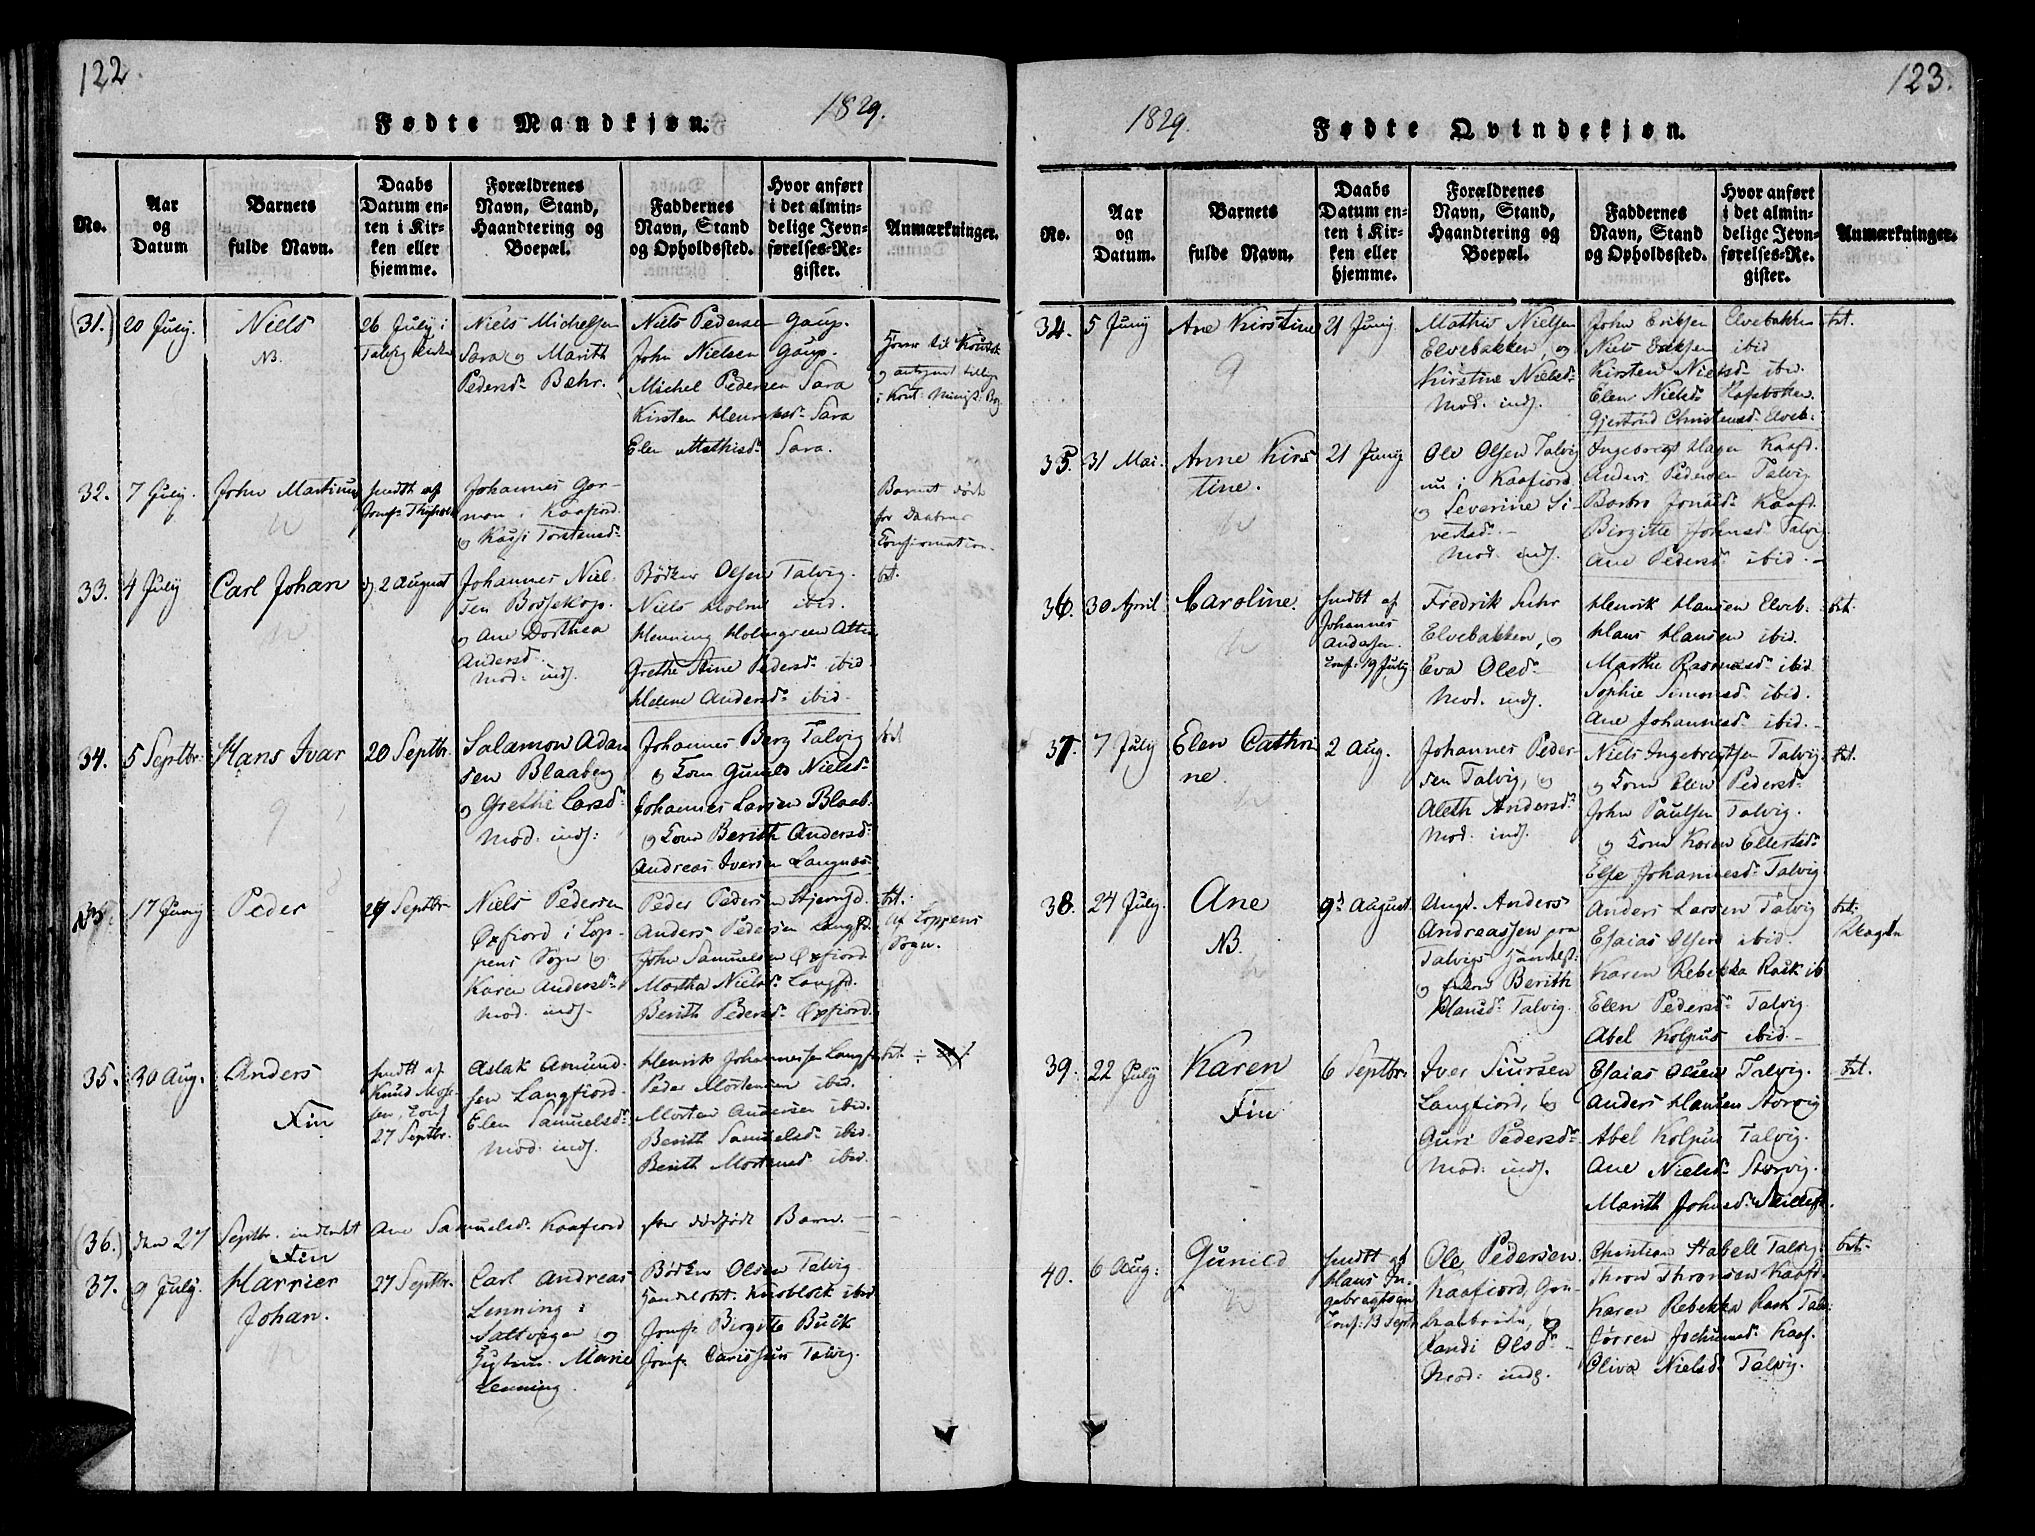 122.
1829.
Fødte Mandkjøn.
No.
Aar og Datum
Barnets fulde Navn.
Daabs Datum enten i Kirken eller hjemme.
Forældrenes Navn, Stand, Haandtering og Boepæl.
Faddernes Navn, Stand og Opholdssted.
Hvor anført i det almindelige Jevnførelses-Register.
Anmærkninger.
(31.) 20 July.
Niels
NB.
26 July i
Talvig Kirken
Niels Michelsen
Sara og Marith
Pedersd. Behr.
Niels Pedersen Gaup.
John Nielsen Gaup.
Michel Pedersen Sara
Kirsten Henriksd. Sara
Elen Mathisd. Sara.
32. 7 July.
John Martinus
hmdt af
Johannes Gor-
mon i Kaafiord.
og Kaisi Torstensd.
Barnet døde
før Daabens
Confirmation.
33. 4 July
Carl Johan
2 August
Johannes Niel-
sen Bossekop.
og Ane Dorthea
Andersd.
Mod. indf.
Bødker Olsen Talvig.
Niels Holm ibid.
Henning Holmgreen Alten
Grethe Stine Pedersd. ibid
Helene Andersd. ibid.
bet.
34. 5 Septbr.
Hans Ivar
20 Septbr.
Salamon Adam
sen Blaaberg
og Grethe Larsd.
Mod. indf.
Johannes Berg Talvig
og Kone Gunild Nielsd.
Johannes Larsen Blaab.
og Kone Berith Andersd.
Andreas Iversen Langnæs
bet
17 Juny
Peder
27 Septbr
Niels Pedersen
Øxfiord i Lop-
pens Sogn og
Karen Andersd.
Mod. indf.
Peder Pedersen Stjerngd.
Anders Pedersen Langfd.
John Samuelsen Øxfiord
Martha Nielsd. Langfd.
Berith Pedersd. Øxfiord.
bet.
Af Loppens
Sogn.
35. 30 Aug.
Anders
Fin
hmdt af
Knud Mor-
sen, Conf
27 Septbr.
Aslak Amund-
sen Langfiord.
Elen Samuelsd.
Mod. indf.
Henrik Johannessen Langf.
Peder Mortensen ibid.
Morten Andersen ibid.
Berith Samuelsd. ibid.
Berith Mortensd. ibid.
bet.
(36.) den 27 Septbr. Ane Samuelsd. Kaafiord dødfødt Barn.
Fin
37. 9 July.
Harrier
Johan.
27 Septbr.
Carl Andreas
Lenning i
og
Marie
Lenning.
Bødker Olsen Talvig
Knoblock ibid
Jomf. Birgitte Buck
Jomf. Talvig.
123.
1829.
Fødte Qvindekjøn.
No.
Aar og Datum.
Barnets fulde Navn.
Daabs Datum enten i Kirken eller hjemme.
Forældrenes Navn, Stand, Haandtering og Boepæl.
Faddernes Navn, Stand og Opholdssted.
Hvor anført i det almindelige Jevnførelses-Register.
Anmærkninger.
34. 5 Juny
Ane Kirstine
21 Juny.
Mathis Nielsen
Elvebakken, og
Kirstine Nielsd.
Mod. indf.
John Eriksen Elvebakken
Niels Eriksen ibid
Kirsten Nielsd. ibid.
Elen Nielsd.
Gjertrud Christensd. Elveb.
bet.
35. 31 Mai.
Anne Kirs
tine.
21 Juny
Ole Olsen Talvig
nu i Kaafiord
og Severine Si-
vertsd.
Mod. indf.
Ingeborg Hagen Kaafd.
Anders Pedersen Talvig
Barbro Jonasd. Kaafd.
Birgitte Johnsd. Talvig
Ane Pedersd. ibid.
36. 30 April.
Caroline.
hmdt af
Johannes
Andersen.
Conf. 19 July
Fredrik Suhr
Elvebakken, og
Eva Olsd.
Mod. indf.
Henrik Hansen Elveb.
Hans Hansen ibid.
Marthe Rasmusd. ibid
Sophie Simonsd. ibid.
Ane Johannesd. ibid.
bet.
37. 7 July
Elen Cathri
ne.
2 Aug.
Johannes Peder-
sen Talvig, og
Aleth Andersd.
Mod. indf.
Niels Ingebrigtsen Talvig
og Kone Elen Pedersd.
John Paulsen Talvig.
og Kone Karen Ellertsd.
Else Johannesd. Talvig
bet.
38. 24 July.
Ane
NB.
9d. August
Ungk. Anders
Andreassen paa
Talvigs Handelst.
og Enken Berith
Hansd. Talvig.
Anders Larsen Talvig
Esaias Olsen ibid.
Karen Rebekka Rask ib
Elen Pedersd. Talvig.
Abel Kolpus ibid.
bet.
39. 22 July
Karen
Fin
6 Septbr.
Iver Siursen
Langfiord, og
Guri Pedersd.
Mod. indf.
Esaias Olsen Talvig.
Anders Hansen Storvig
Abel Kolpus Talvig.
Ane Nielsd. Storvig.
Marith Johnsd.
bet.
40. 6 Aug:
Gunild
hmdt af
Hans In-
gebrigtsen
Conf: 13 Sept.
Ole Pedersen
Kaafiord, Gu-
og
Randi Olsd.
Mod. indf.
Christian Stabell Talvig
Thron Thronsen Kaafd.
Karen Rebekka Rask Talv:
Jørren Jochumsd. Kaaf.
Oliva Nielsd. Talvig.
bet.